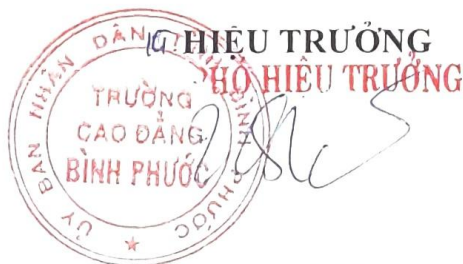 KT HIỆU TRƯỞNG
PHÓ HIỆU TRƯỞNG
ỦY BAN NHÂN DÂN TỈNH BÌNH PHƯỚC
TRƯỜNG
CAO ĐẲNG
BÌNH PHƯỚC